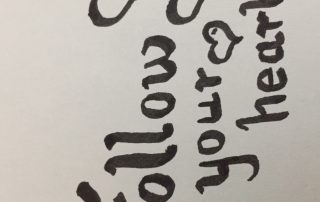 follow
your
heart